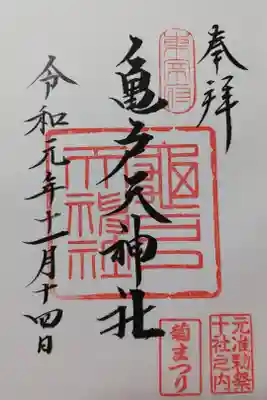 奉拝
亀戸天神社
令和元年十一月十四日
亀戸天神社
東宰府
菊まつり
元准勅祭
十社之内